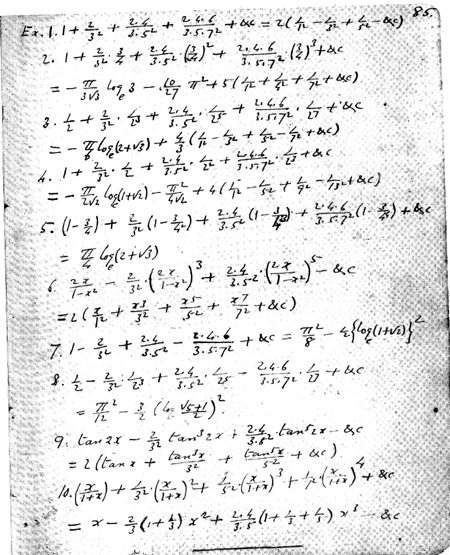 85.
Ex. 1. 1 + 2/3² + 2.4/3.5² + 2.4.6/3.5.7² + &c = 2(1/1² - 1/3² + 1/5² - &c)
2. 1 + 2/3² · 3/4 + 2.4/3.5² · (3/4)² + 2.4.6/3.5.7² · (3/4)³ + &c
= - π/3√3 logₑ3 - 10/27 π² + 5(1/1² + 1/4² + 1/7² + &c)
3. 1/2 + 2/3² · 1/2³ + 2.4/3.5² · 1/2⁵ + 2.4.6/3.5.7² · 1/2⁷ + &c
= - π/6 logₑ(2+√3) + 4/3 (1/1² - 1/3² + 1/5² - 1/7² + &c)
4. 1 + 2/3² · 1/2 + 2.4/3.5² · 1/2² + 2.4.6/3.5.7² · 1/2³ + &c
= - π/2√2 logₑ(1+√2) - π²/4√2 + 4(1/1² - 1/5² + 1/9² - 1/13² + &c)
5. (1 - 3/4) + 2/3² (1 - 3/4²) + 2.4/3.5² (1 - 3/4³) + 2.4.6/3.5.7² (1 - 3/4⁴) + &c
= π/4 logₑ(2+√3)
6. 2x/1-x² - 2/3² · (2x/1-x²)³ + 2.4/3.5² · (2x/1-x²)⁵ - &c
= 2(x/1² + x³/3² + x⁵/5² + x⁷/7² + &c)
7. 1 - 2/3² + 2.4/3.5² - 2.4.6/3.5.7² + &c = π²/8 - 1/2 {logₑ(1+√2)}²
8. 1/2 - 2/3² · 1/2³ + 2.4/3.5² · 1/2⁵ - 2.4.6/3.5.7² · 1/2⁷ + &c
= π²/12 - 3/2 (log √5+1/2)²
9. tan 2x - 2/3² tan³ 2x + 2.4/3.5² tan⁵ 2x - &c
= 2(tan x + tan³x/3² + tan⁵x/5² + &c)
10. (x/1+x) + 1/3² · (x/1+x)² + 1/5² · (x/1+x)³ + 1/7² · (x/1+x)⁴ + &c
= x - 2/3 (1 + 1/3) x² + 2.4/3.5 (1 + 1/3 + 1/5) x³ - &c